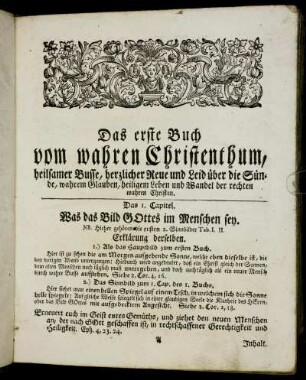 Das erste Buch
vom wahren Christenthum,
heilsamer Busse, herzlicher Reue und Leid über die Sün-
de, wahrem Glauben, heiligem Leben und Wandel der rechten
wahren Christen.
Das 1. Capitel.
Was das Bild GOttes im Menschen sey.
NB. Hieher gehören die ersten 2. Sinnbilder Tab. I. II.
Erklärung derselben.
1.) Als das Hauptbild zum ersten Buch.
Hier ist zu sehen die am Morgen aufgehende Sonne, welche eben dieselbe ist, die
den vorigen Abend untergegangen: Hiedurch wird angedeutet, daß ein Christ gleich der Sonnen,
dem alten Menschen nach täglich muß untergehen, und doch nachtäglich als ein neuer Mensch
durch wahre Buß aufstehen. Siehe 2. Cor. 4, 16.
2.) Das Sinnbild zum 1. Cap. des 1. Buchs,
Hier siehet man einen hellen Spiegel auf einem Tisch, in welchem sich die Sonne
helle spiegelt: Siehe 2. Cor. 3, 18.
Erneuert euch im Geist eures Gemüths, und ziehet den neuen Menschen
an, der nach GOtt geschaffen ist, in rechtschaffener Gerechtigkeit und
Heiligkeit. Eph. 4, 23. 24.
A
Inhalt.